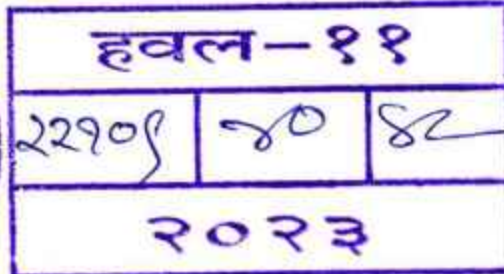 हवल-११
२२१०९ ४०
२०२३